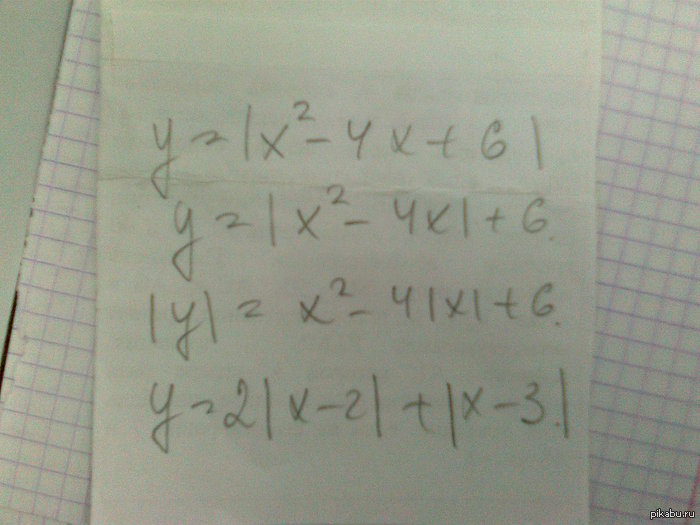 y = |x² - 4x + 6|
y = |x² - 4x| + 6.
|y| = x² - 4|x| + 6.
y = 2|x - 2| + |x - 3.|
pikabu.ru